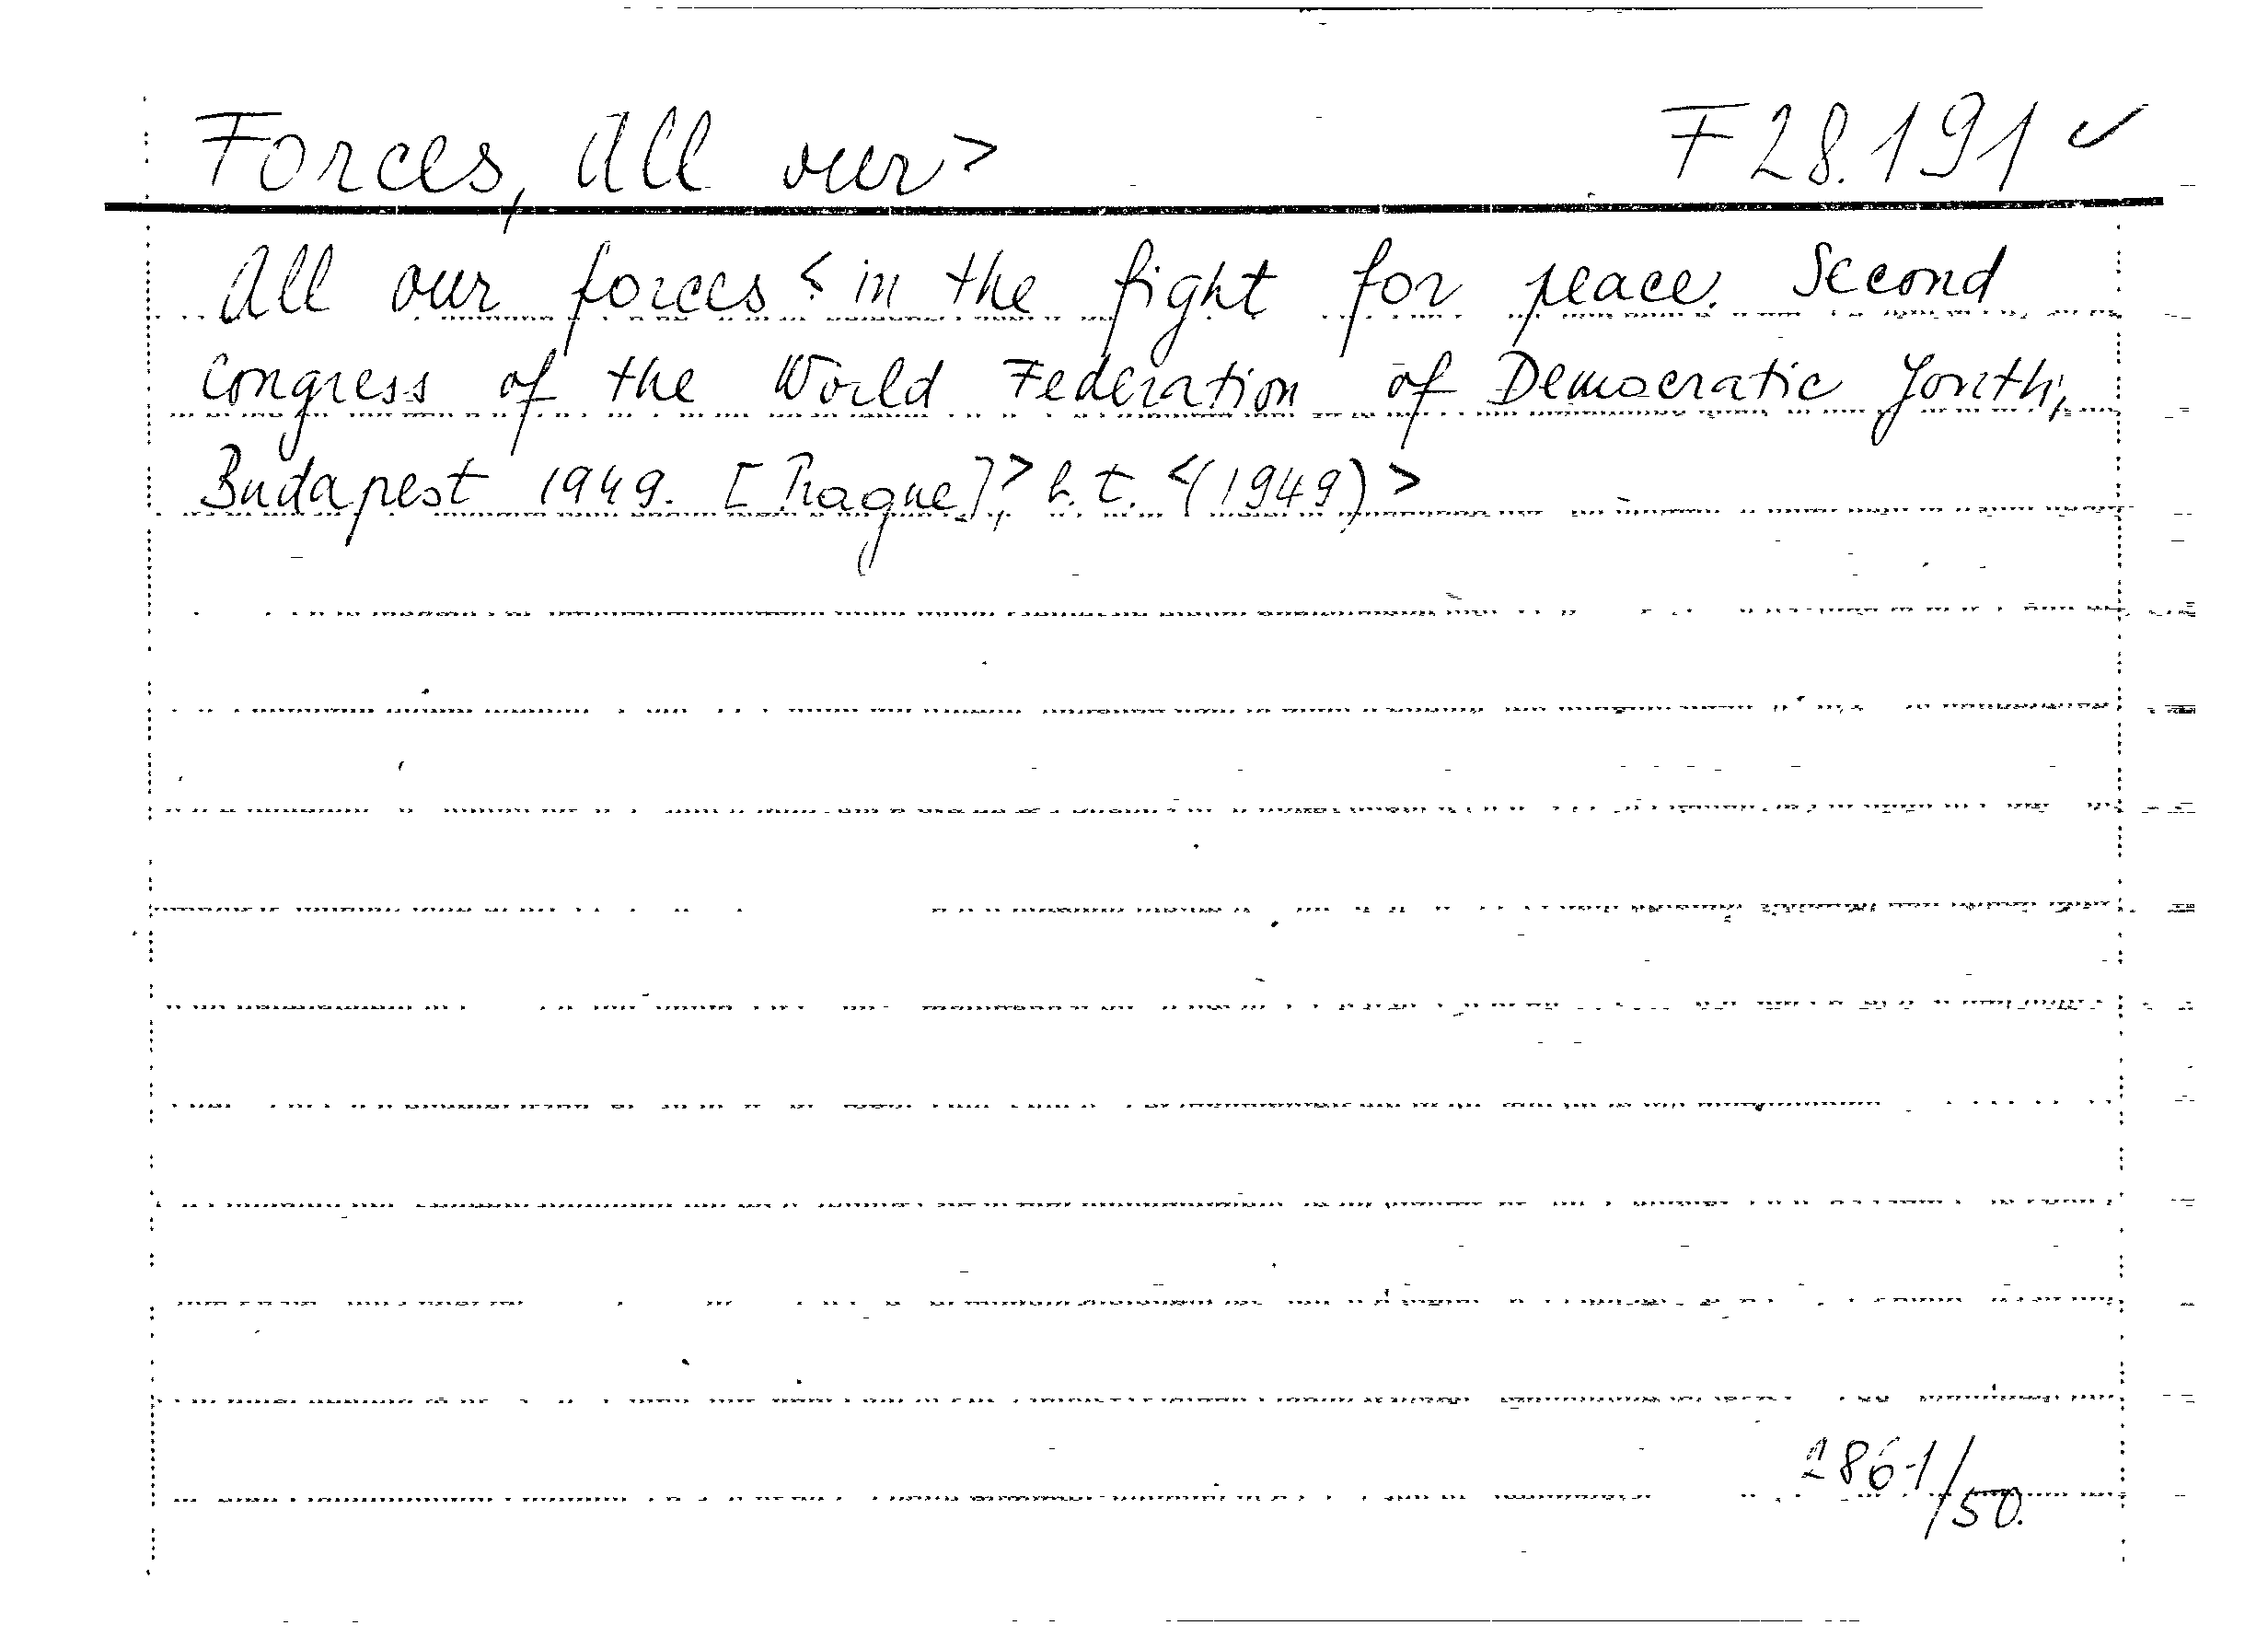 Forces, All our> F28.191 ✓
All our forces < in the fight for peace. Second
Congress of the World Federation of Democratic Youth,
Budapest 1949. [Prague],> h.t. <(1949)>
2861/50.